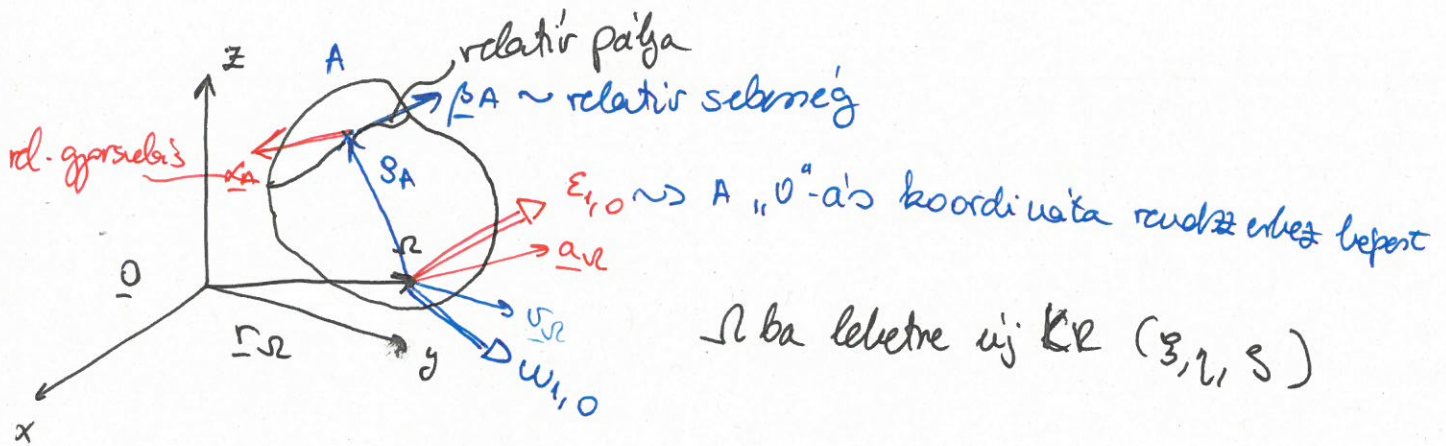 z
A
relatív pálya
β A ~ relatív sebesség
rel. gyorsulás
α A
ρ A
ε 1,0 ~> A „0"-ás koordináta rendszerhez képest
Ω
a Ω
0
v Ω
Ω ba lehetne új KR (ξ, η, ζ)
r Ω
y
ω 1,0
x